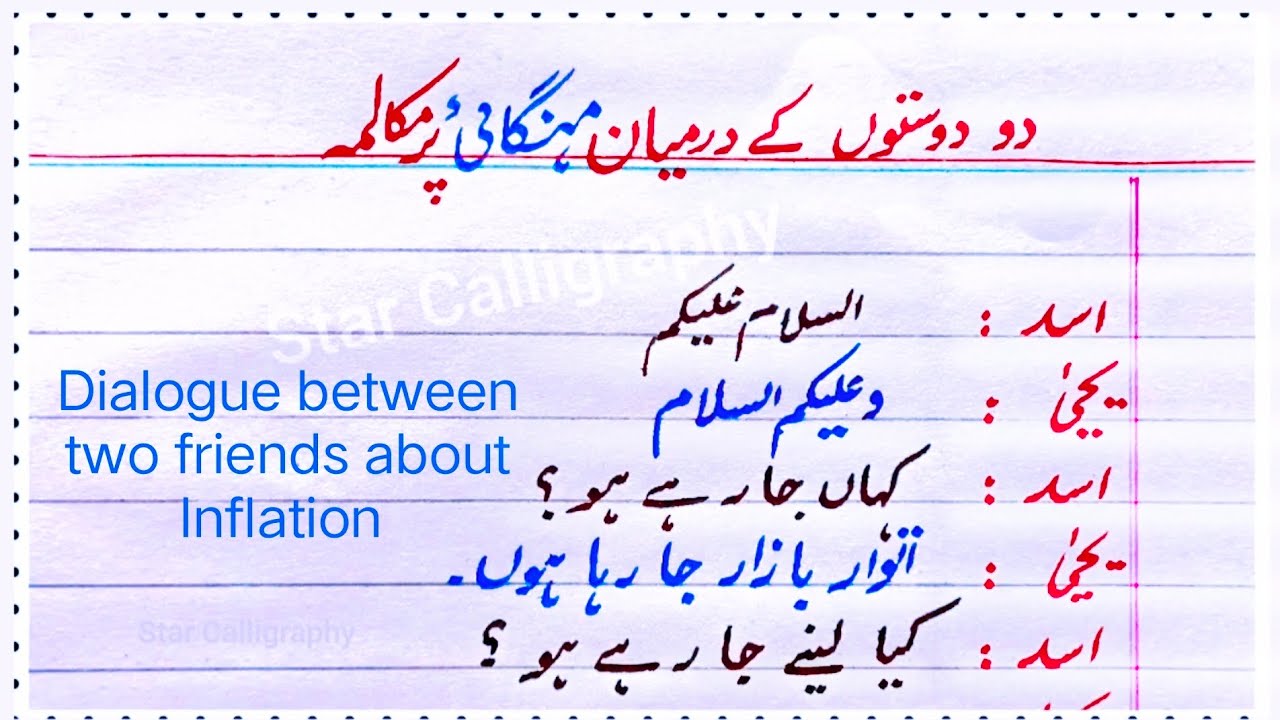 دو دوستوں کے درمیان مہنگائی پر مکالمہ
Star Calligraphy
اسد : السلام علیکم
یحیٰی : وعلیکم السلام
اسد : کہاں جا رہے ہو؟
یحیٰی : اتوار بازار جا رہا ہوں۔
اسد : کیا لینے جا رہے ہو؟
Dialogue between
two friends about
Inflation
Star Calligraphy